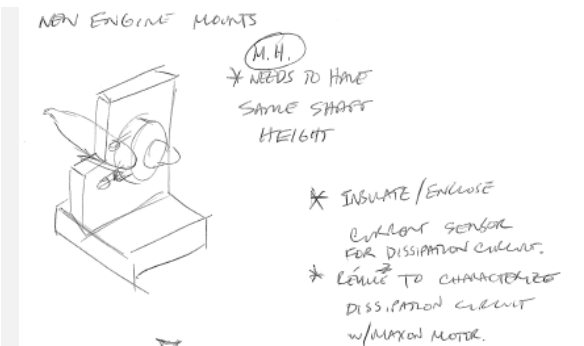 NEW ENGINE MOUNTS
M.H.
* NEEDS TO HAVE
SAME SHAFT
HEIGHT
* INSULATE/ENCLOSE
CURRENT SENSOR
FOR DISSIPATION CIRCUIT.
* TO CHARACTERIZE
DISSIPATION CIRCUIT
W/MAXON MOTOR.